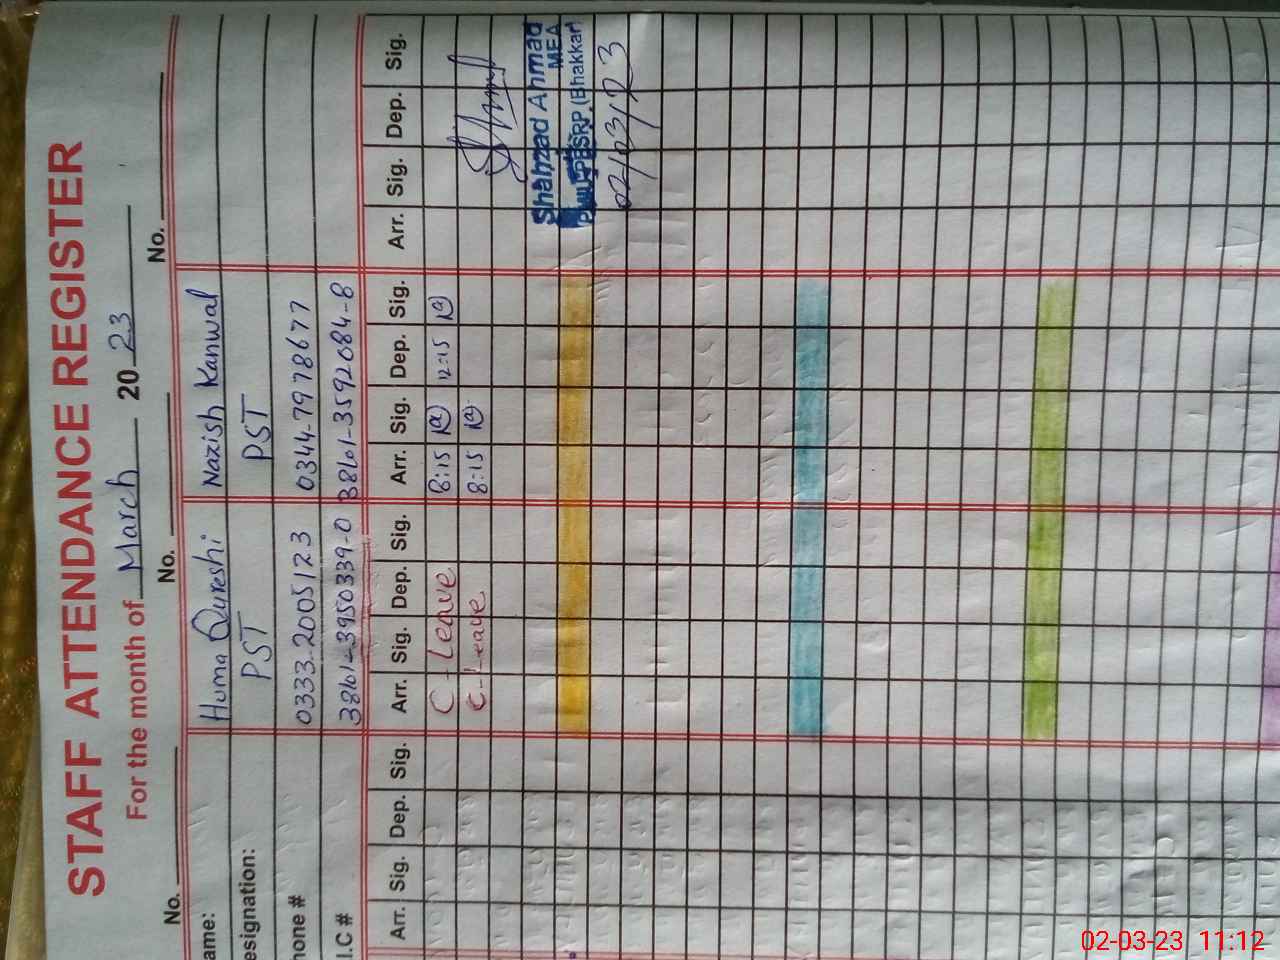 STAFF ATTENDANCE REGISTER
For the month of March 2023
No. No. No.
ame: Huma Qureshi Nazish Kanwal
esignation: PST PST
hone # 0333-2005123 0344-7978677
I.C # 38101-3950339-0 38101-3592084-8
Arr. Sig. Dep. Sig. Arr. Sig. Dep. Sig. Arr. Sig. Dep. Sig. Arr. Sig. Dep. Sig.
C-Leave 8:15 12:15
C-Leave 8:15
Shahzad Ahmad
MEA
(Bhakkar)
02/03/23
02-03-23 11:12